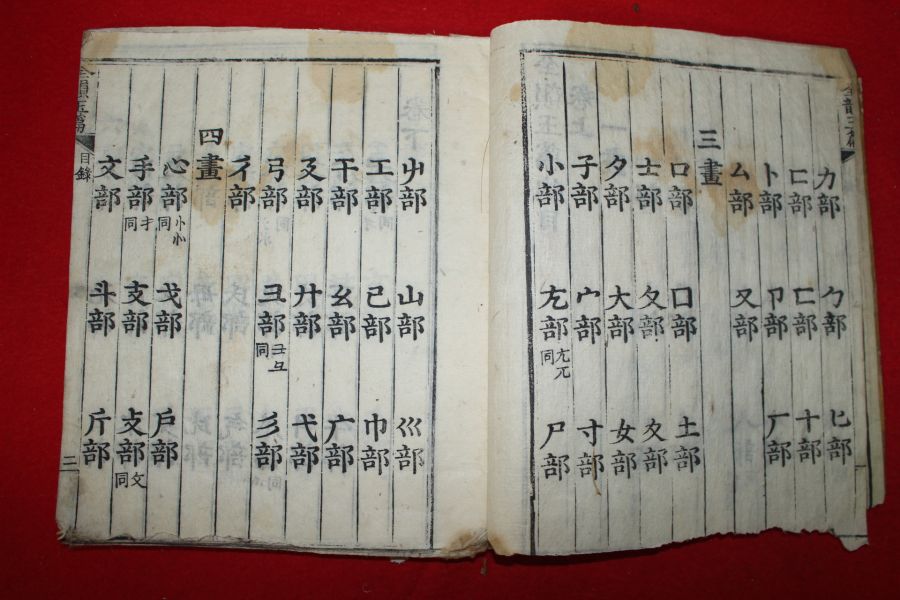 力部 勹部 匕部
匚部 匸部 十部
卜部 卩部 厂部
厶部 又部
三畫
口部 囗部 土部
士部 夂部 夊部
夕部 大部 女部
子部 宀部 寸部
小部 尢部 尣兀同 尸部
屮部 山部 巛部
工部 己部 巾部
干部 幺部 广部
廴部 廾部 弋部
弓部 彐部 彑同 彡部
彳部
四畫
心部 忄㣺同 戈部 戶部
手部 扌同 支部 攴部 攵同
文部 斗部 斤部
全韻玉篇 目錄 三